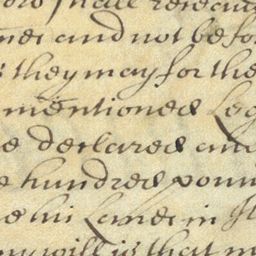 shall receive
and not be for
they may for the
mentioned Leg
declared and
hundred poun
his Lands in
will is that m